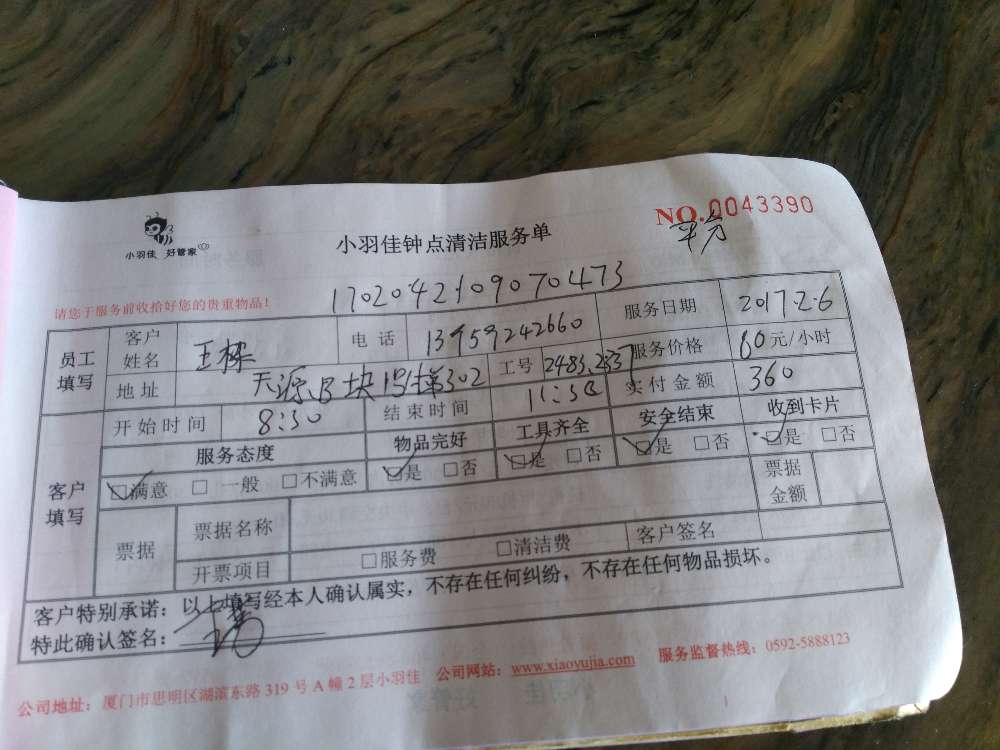 NO.0043390
小羽佳 好管家
小羽佳钟点清洁服务单
平方
请您于服务前收拾好您的贵重物品！
1702042109070473
员工填写 客户姓名 王栋 电话 13959242660 服务日期 2017.2.6
地址 天源B块 302 工号 2483. 服务价格 60元/小时
开始时间 8:30 结束时间 11:30 实付金额 360
客户填写 服务态度 物品完好 工具齐全 安全结束 收到卡片
☑满意 □一般 □不满意 ☑是 □否 ☑是 □否 ☑是 □否 ☑是 □否
票据 票据名称 票据金额
开票项目 □服务费 □清洁费 客户签名
客户特别承诺：以上填写经本人确认属实，不存在任何纠纷，不存在任何物品损坏。
特此确认签名：
公司地址：厦门市思明区湖滨东路319号A幢2层小羽佳 公司网站：www.xiaoyujia.com 服务监督热线：0592-5888123